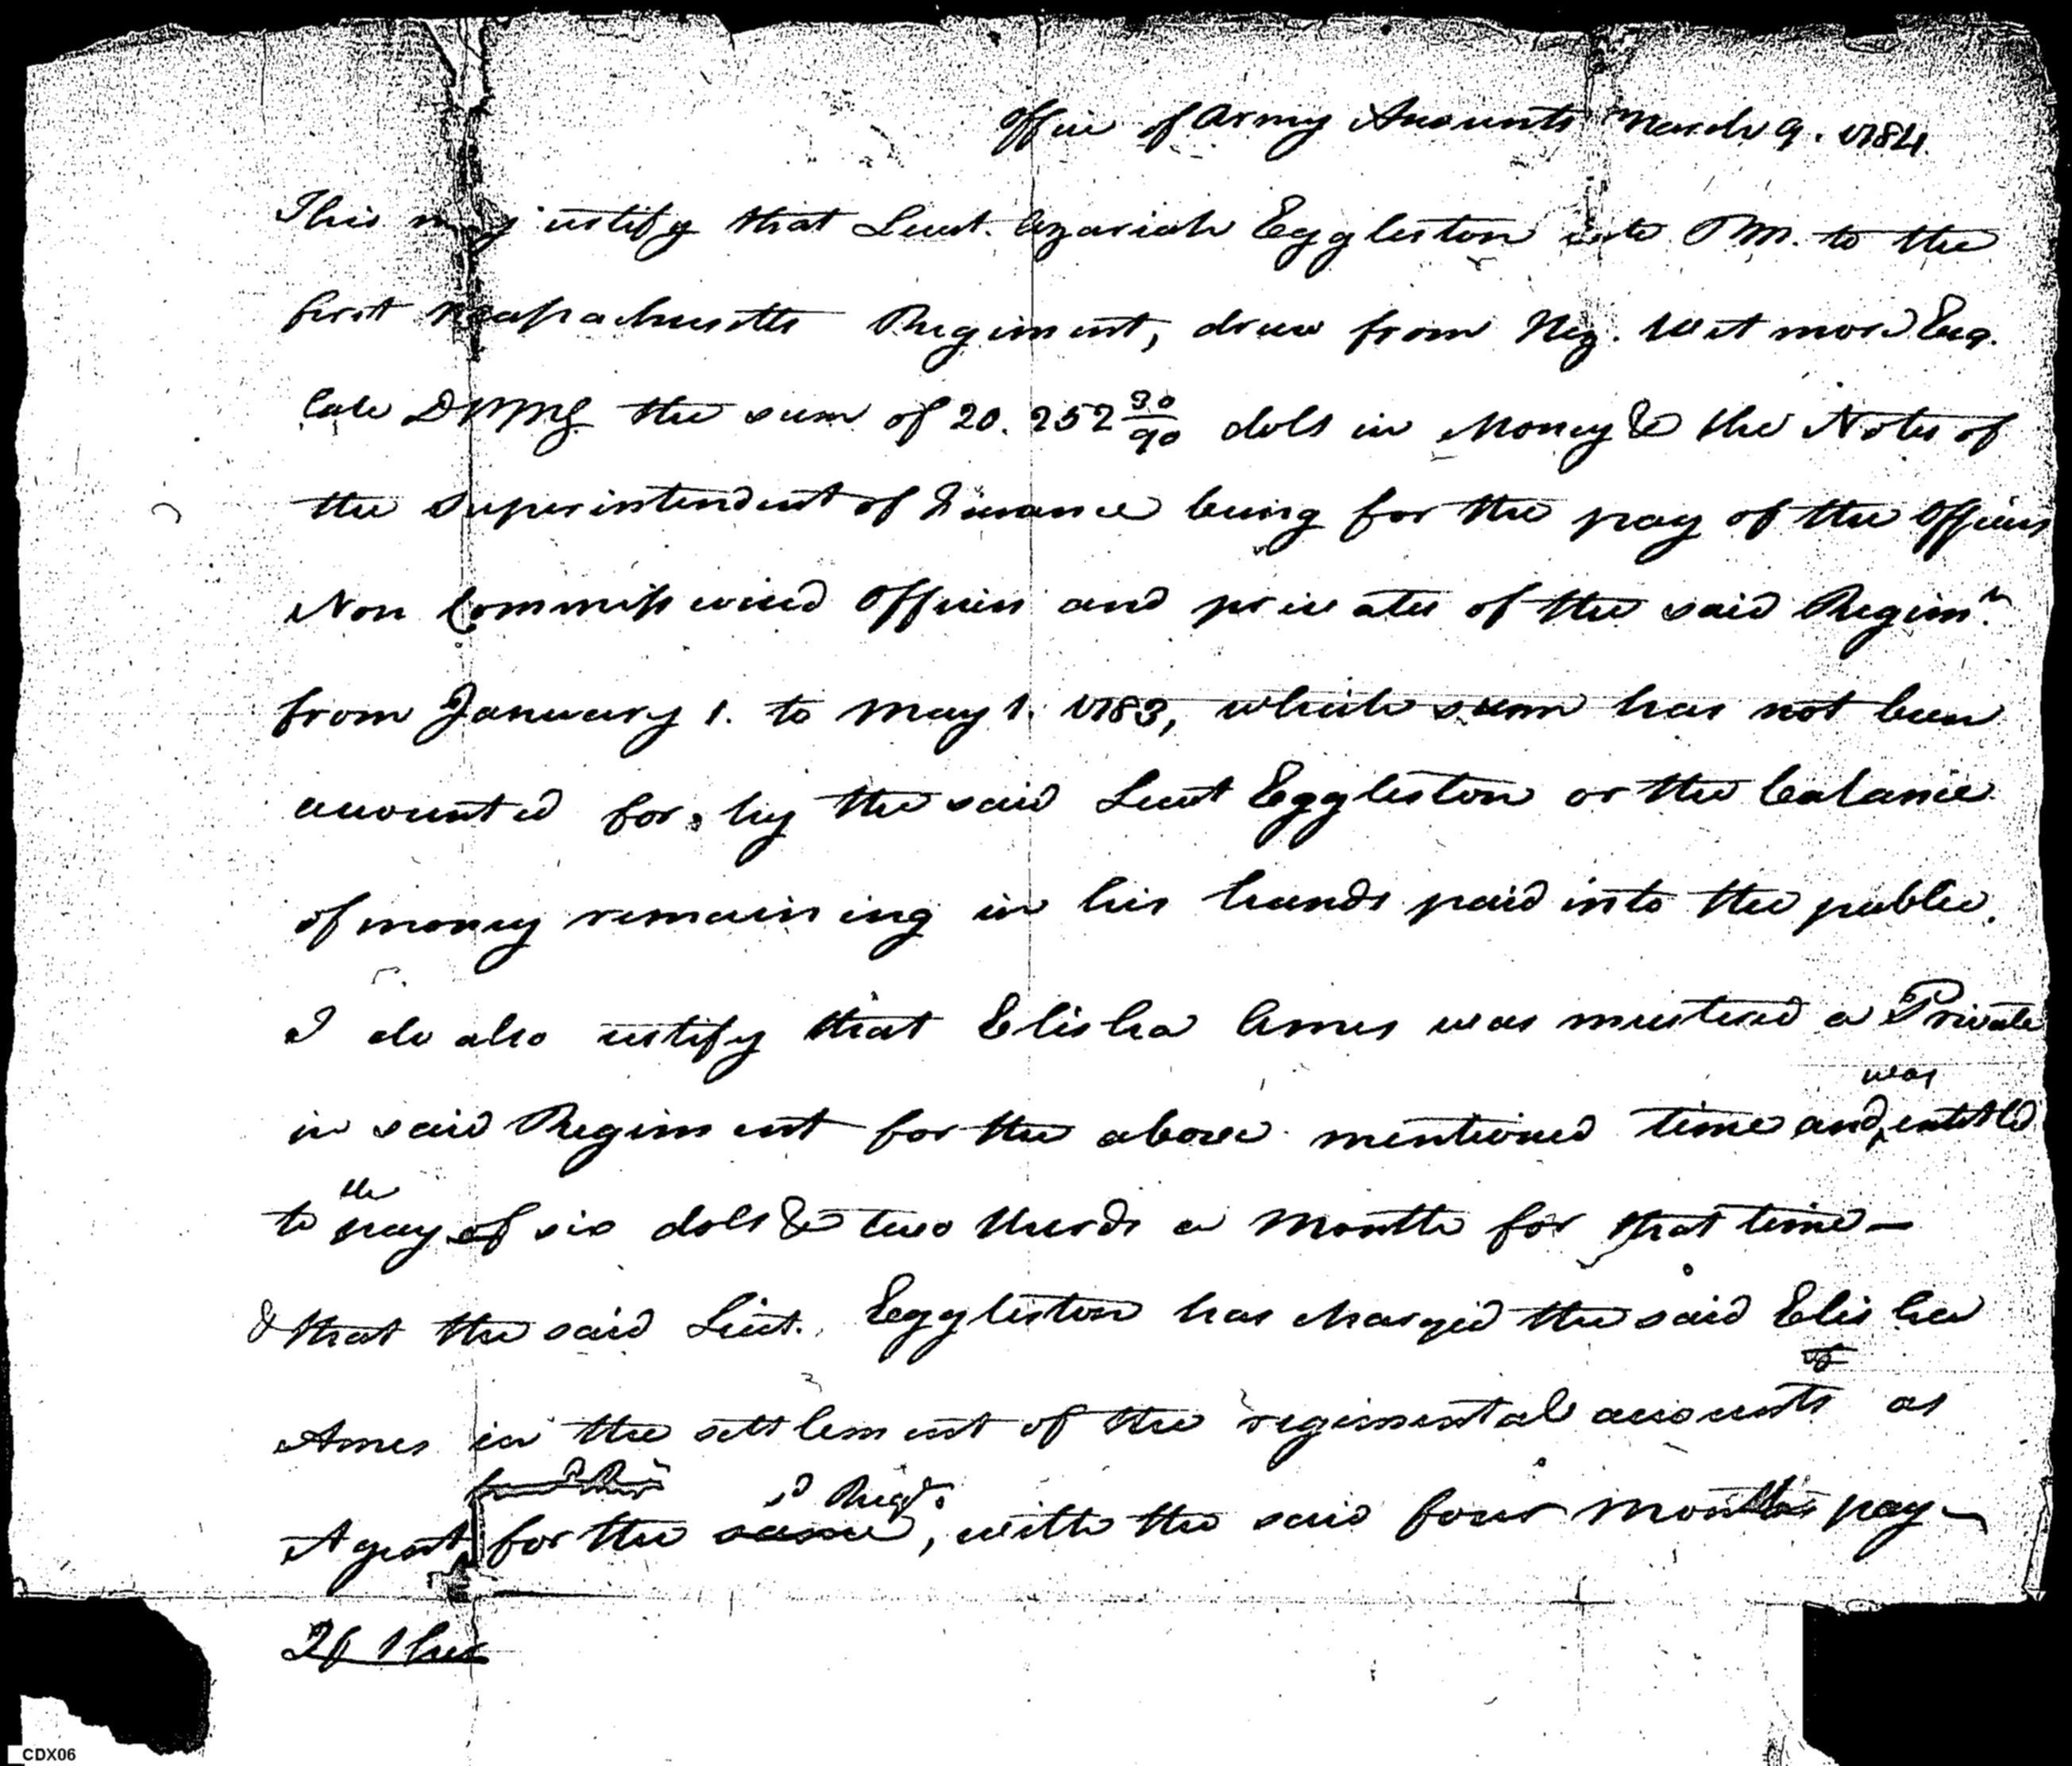 Office of Army Accounts March 9. 1784.
This may certify that Lieut. Azariah Eggleston late PM. to the
first Massachusetts Regiment, drew from Hez. Wetmore Esq.
late DPMG the sum of 20.252 30/90 dols in Money & the Notes of
the Superintendent of Finance being for the pay of the Officers
Non Commissioned Officers and privates of the said Regimt.
from January 1. to May 1. 1783, which sum has not been
accounted for by the said Lieut Eggleston or the balance
of money remaining in his hands paid into the public.
I do also certify that Elisha Ames was mustered a Private
was
in said Regiment for the above mentioned time and entitled
the
to pay of six dols & two thirds a Month for that time —
& that the said Lieut. Eggleston has charged the said Elisha
Ames in the settlement of the regimental accounts as
sd Regt.
Agent for the same, with the said four Months pay —
CDX06